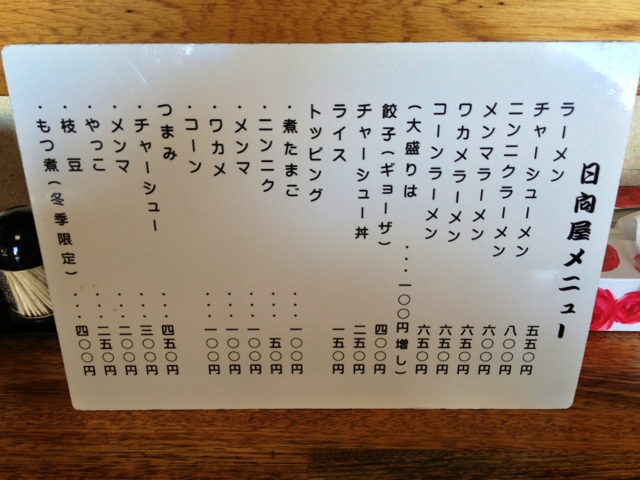 日向屋メニュー
ラーメン 五五〇円
チャーシューメン 八〇〇円
ニンニクラーメン 六〇〇円
メンマラーメン 六五〇円
ワカメラーメン 六五〇円
コーンラーメン 六五〇円
(大盛りは・・・一〇〇円増し)
餃子(ギョーザ) 四〇〇円
チャーシュー丼 二五〇円
ライス 一五〇円
トッピング
・煮たまご・・・一〇〇円
・ニンニク・・・五〇円
・メンマ・・・一〇〇円
・ワカメ・・・一〇〇円
・コーン・・・一〇〇円
つまみ
・チャーシュー・・・四五〇円
・メンマ・・・三〇〇円
・やっこ・・・二〇〇円
・枝豆・・・二五〇円
・もつ煮(冬季限定)・・・四〇〇円